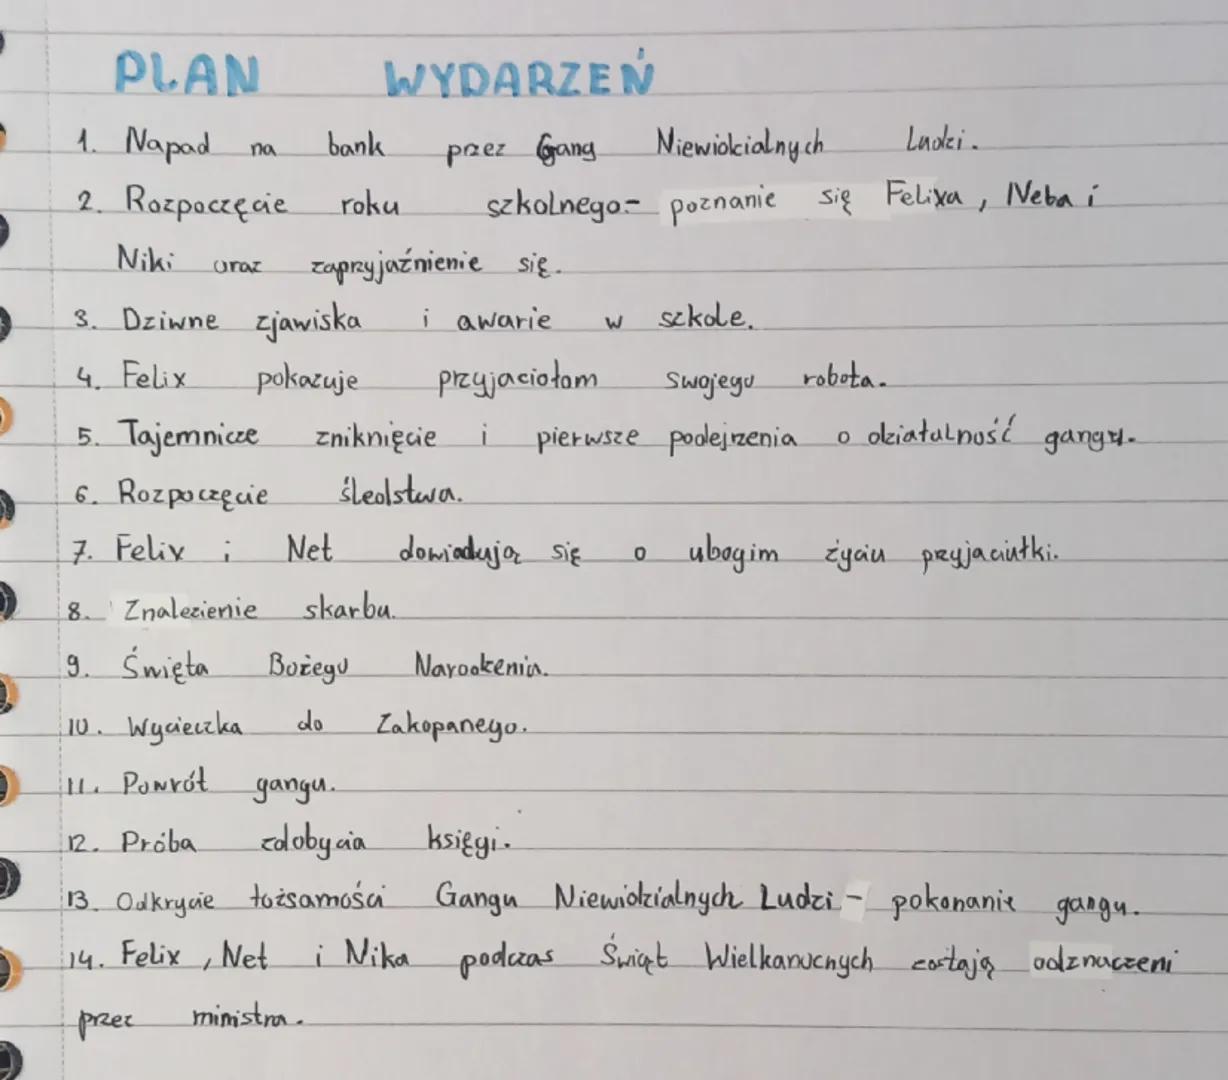 PLAN WYDARZEŃ
1. Napad na bank przez Gang Niewidzialnych Ludzi.
2. Rozpoczęcie roku szkolnego - poznanie się Felixa, Neta i
Niki oraz zaprzyjaźnienie się.
3. Dziwne zjawiska i awarie w szkole.
4. Felix pokazuje przyjaciołom swojego robota.
5. Tajemnicze zniknięcie i pierwsze podejrzenia o działalność gangu.
6. Rozpoczęcie śledstwa.
7. Felix i Net dowiadują się o ubogim życiu przyjaciółki.
8. Znalezienie skarbu.
9. Święta Bożego Narodzenia.
10. Wycieczka do Zakopanego.
11. Powrót gangu.
12. Próba zdobycia księgi.
13. Odkrycie tożsamości Gangu Niewidzialnych Ludzi - pokonanie gangu.
14. Felix, Net i Nika podczas Świąt Wielkanocnych zostają odznaczeni
przez ministra.